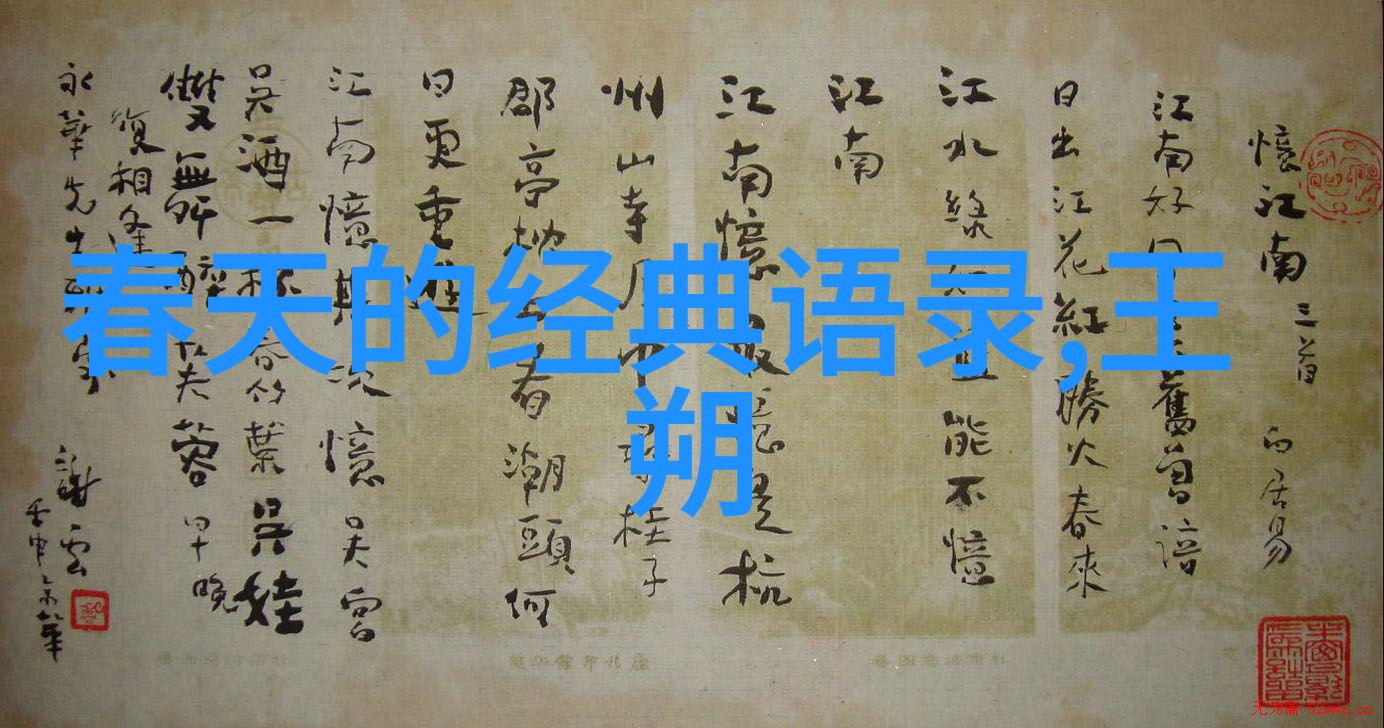 春天的经典语录,王
朔
憶江南 三首 白居易
江南好 舊曾諳
日出江花紅勝火春來
江水綠 能不憶
江南
江南憶最憶是杭
州山寺月中尋桂子
郡亭枕上看潮頭何
日更重遊
江南憶其次憶吳宮
吳酒一杯春竹葉吳娃
雙 醉芙蓉早晚
復相逢
永華先生
謝雲
无为斋 52wwz.cn